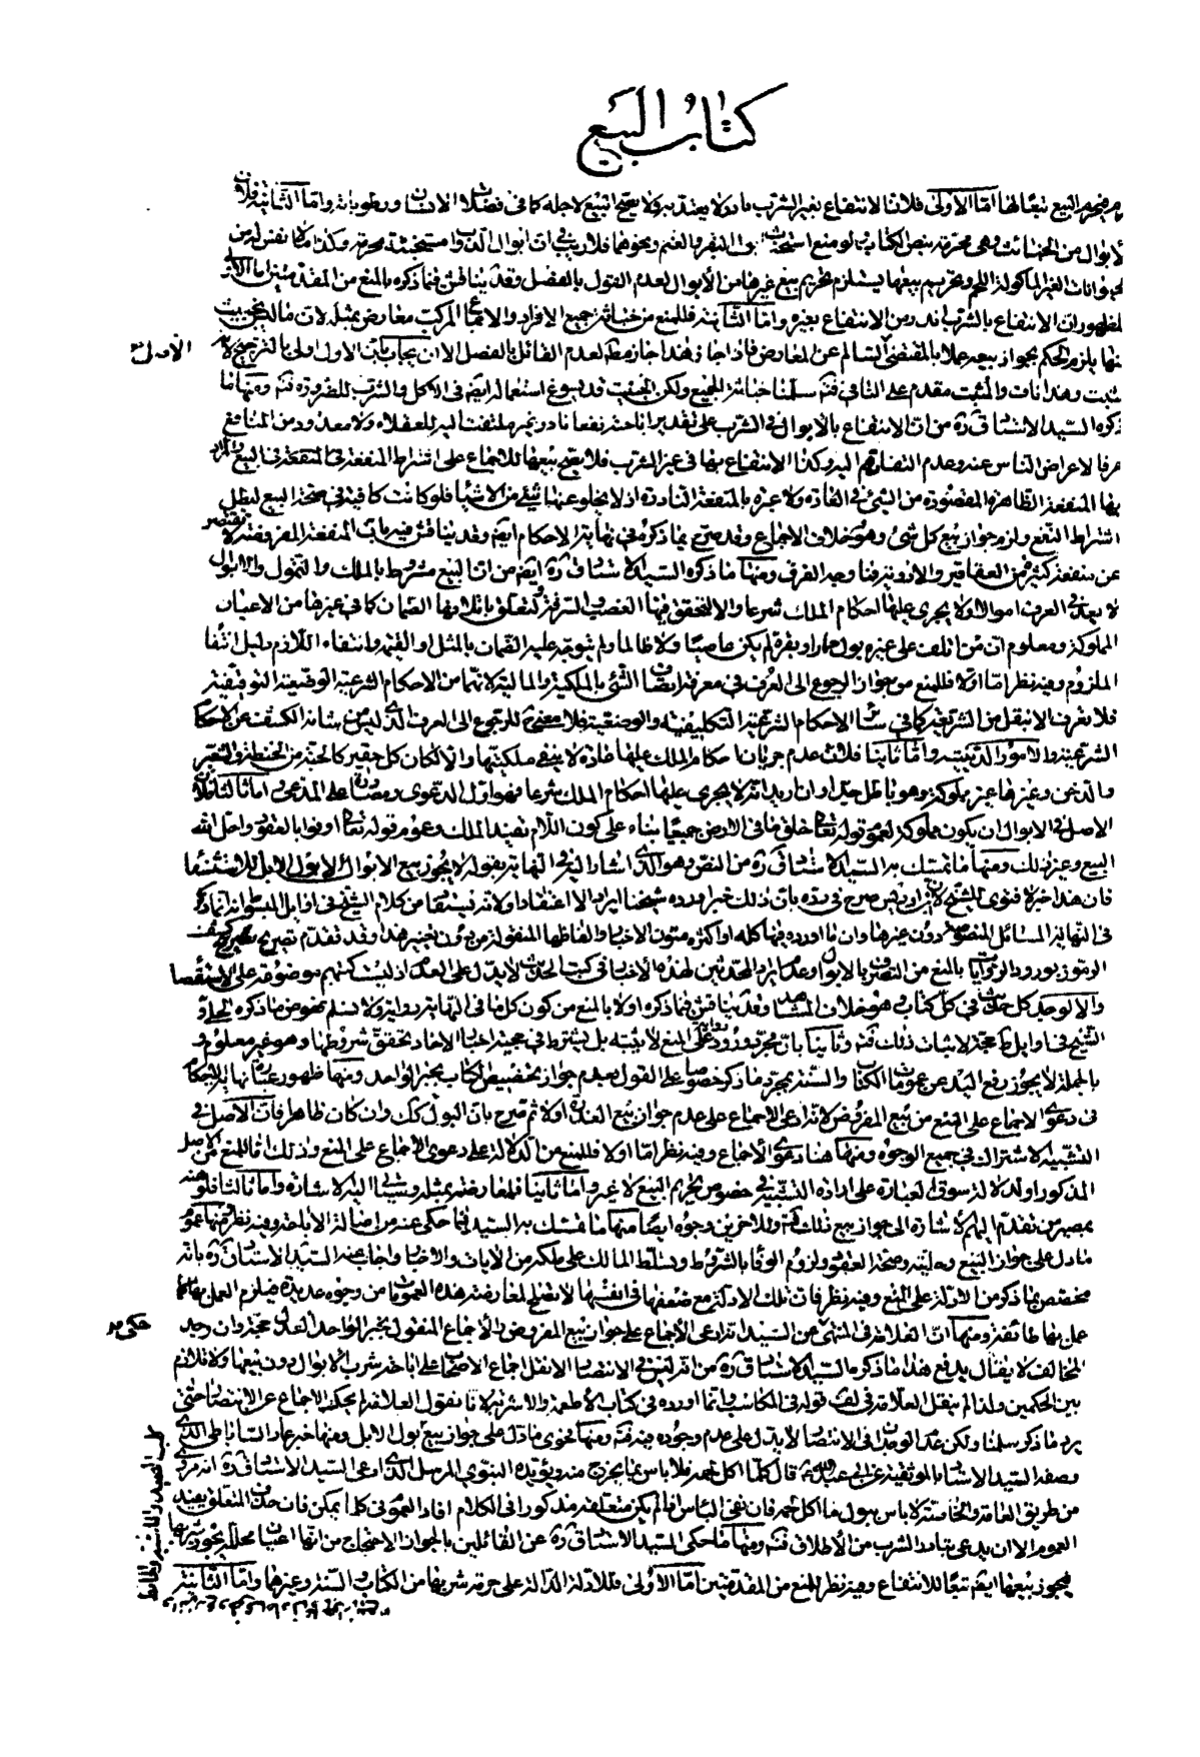 كتاب البيع
فيحرم البيع تبعا لها اما الاولى فلان الانتفاع بغير الشرب نادر لا يعتد به ولا يصح البيع لاجله كما فى فضلات الانسان ورطوباته واما الثانية فلان
الابوال من الخبائث وهى محرمة بنص الكتاب ولو منع استخباث بول البقر والغنم ونحوهما فلا ريب فى ان ابوال الدواب مستخبثة محرمة وكذا ما لا نفس له من
الحيوانات الغير الماكولة اللحم وتحريم بيعها يستلزم تحريم بيع غيرها من الأبوال لعدم القول بالفصل وقد يناقش فيما ذكره بالمنع من المقدمتين اما الاولى
فلظهور ان الانتفاع بالشرب اندر من الانتفاع بغيره واما الثانية فللمنع من خباثة جميع الافراد والاجماع المركب معارض بمثله لان ما ليس بخبيث
منها يلزم الحكم بجواز بيعه عملا بالمقتضى السالم عن المعارض فاذا جاز هذا جاز مطلقا لعدم القائل بالفصل الا ان يجاب بان الاول اولى بالترجيح لانه
الأولى
مثبت وهذا ناف والمثبت مقدم على النافى فتم سلمنا خباثة الجميع ولكن الخبيث قد يسوغ استعماله ايضا فى الاكل والشرب للضرورة فتم ومنها ما
ذكره السيد الاستاد قده من ان الانتفاع بالأبوال فى الشرب على تقدير اباحته نفعا نادر غير ملتفت اليه للعقلاء ولا معدود من المنافع
عرفا لاعراض الناس عنه وعدم التفاتهم اليه وكذا الانتفاع بها فى غير الشرب فلا يصح بيعها للاجماع على اشتراط المنفعة فى المنفعة فى البيع والمراد
بها المنفعة الظاهرة المقصودة من الشىء فى العادة ولا عبرة بالمنفعة النادرة اذ لا يخلو عنها شىء من الاشياء فلو كانت كافية فى صحة البيع لبطل
اشتراط النفع ولزم جواز بيع كل شىء وهو خلاف الاجماع وقد صرح بما ذكره فى نهاية الاحكام ايضا وقد يناقش فيه بان المنفعة المفروضة لا تقصر
عن منفعة كثير من العقاقير والادوية فما وجه الفرق ومنها ما ذكره السيد الاستاد قده ايضا من ان البيع مشروط بالملك والتمول والابوال
لا يعد فى العرف اموالا ولا يجرى عليها احكام الملك شرعا والا لتحقق فيها الغصب والسرقة ولتعلق باتلافها الضمان كما فى غيرها من الاعيان
المملوكة ومعلوم ان من اتلف على غيره بول حمار او بقرة لم يكن عاصيا ولا ظالما ولم يتوجه عليه الضمان بالمثل او القيمة وانتفاء اللازم دليل انتفاء
الملزوم وفيه نظر اما اولا فللمنع من جواز الرجوع الى العرف فى معرفة اتصاف الشىء بالملكية والمالية لانهما من الاحكام الشرعية الوضعية التوقيفية
فلا تعرف الا بنقل من الشريعة كما فى سائر الاحكام الشرعية التكليفية والوضعية فلا معنى للرجوع الى العرف الذى ليس من شانه الكشف عن الاحكام
الشرعية والامور الدينية واما ثانيا فلان عدم جريان احكام الملك عليها عادة لا ينفى ملكيتها والا لكان كل حقير كالحبة من الحنطة والشعير
والدخن وغيرها غير مملوكة وهو باطل جدا وان اريد انه لا يجرى عليها احكام الملك شرعا فهو اول الدعوى ومصادرة على المدعى واما ثالثا فلان
الاصل فى الابوال ان يكون مملوكة لعموم قوله تعالى خلق لكم ما فى الارض جميعا بناء على كون اللام تفيد الملك وعموم قوله تعالى اوفوا بالعقود واحل الله
البيع وغير ذلك ومنها ما تمسك به السيد الاستاد قده من النص وهو الذى اشار اليه فى النهاية بقوله لا يجوز بيع الابوال الا بول الابل للاستشفاء
فى النهاية المسائل المنصوصة دون غيرها وان ما اورده فيها كله او اكثره متون الاخبار والفاظها المنقولة من دون تغيير هذا وقد تقدم تصريح
الموثوق بورود الروايات بالمنع من التصرف بالابوال وعدم ايراد المحدثين لهذه الأخبار فى كتب الحديث لا يدل على العدم اذ ليست كتبهم موضوعة على الاستقصاء
والا لوجد كل حديث فى كل كتاب وهو خلاف المشاهد وقد يناقش فيما ذكره اولا بالمنع من كون كل ما فى النهاية رواية ولا نسلم نهوض ما ذكره الحلى و
الشيخ فى اوايل ط حجة لاثبات ذلك فتم وثانيا بان مجرد ورود رواية على المنع لا يثبته بل يشترط فى حجية اخبار الاحاد تحقق شروطها وهو غير معلوم و
بالجملة لا يجوز رفع اليد عن عمومات الكتاب والسنة بمجرد ما ذكر خصوصا على القول بعدم جواز تخصيص الكتاب بخبر الواحد ومنها ظهور عبارة نهاية الاحكام
فى دعوى الاجماع على المنع من بيع المفروض لانه ادعى الاجماع على عدم جواز بيع العذرة اولا ثم صرح بان البول كك وان كان ظاهرا فان الاصل فى
التشبيه الاشتراك فى جميع الوجوه ومنها هنا دعوى الأجماع وفيه نظر اما اولا فللمنع من الدلالة على دعوى الاجماع على المنع وذلك اما للمنع من الاصل
المذكور او لدلالة سوق العبارة على ارادة التشبيه فى خصوص تحريم البيع لا غير واما ثانيا فلمعارضته بمثله وسياتى اليه الاشارة واما ثالثا فلوهنه
بمصير من تقدم اليهم الاشارة الى جواز بيع ذلك فتم وللاخرين وجوه ايضا منها ما تمسك به السيد فيما حكى عنه من اصالة الأباحة وفيه نظر ومنها عموم
ما دل على جواز البيع وحليته وصحة العقود ولزوم الوفا بالشروط وتسلط المالك على ملكه من الآيات والاخبار واجاب عنه السيد الاستاد قده بانه
مخصص بما ذكر من الادلة على المنع وفيه نظر فان تلك الادلة مع ضعفها فى انفسها لا تصلح لمعارضة هذه العمومات من وجوه عديدة فيلزم العمل بها كما
عمل بها طائفة ومنها ان العلامة فى المنتهى عن السيد انه ادعى الأجماع على جواز بيع المفروض والاجماع المنقول بخبر الواحد العدل حجة وان وجد
حكى
المخالف لا يقال يدفع هذا ما ذكره السيد الاستاد قده من انه ليس فى الانتصار الا نقل اجماع الاصحاب على اباحة شرب الأبوال دون بيعها ولا تلازم
بين الحكمين ولذا لم ينقل العلامة فى لف قوله فى المكاسب وانما اورده فى كتاب الأطعمة والاشربة لانا نقول العلامة لم يحك الاجماع عن الانتصار حتى
يرد ما ذكر سلمنا ولكن عدم الوجدان فى الانتصار لا يدل على عدم وجوده فيه فتم ومنها فحوى ما دل على جواز بيع بول الابل ومنها خبر عمار الساباطى الذى
وصفه السيد الاستاد بالموثقية عن ابى عبد الله ع قال كلما اكل لحمه فلا باس بما يخرج منه ويؤيده النبوى المرسل الذى ادعى السيد الاستاد قده انه مروى
من طريق العامة والخاصة لا باس ببول ما اكل لحمه فان نفى الباس اذا لم يكن متعلقه مذكورا فى الكلام افاد العموم فى كلما يمكن فان حذف المتعلق يفيد
العموم الا ان يدعى تبادر الشرب من الأطلاق فتم ومنها ما حكى السيد الاستاد قده عن القائلين بالجواز الاحتجاج من انها اعيان محللة يجوز شربها
فيجوز بيعها ايضا تبعا للانتفاع وفيه نظر للمنع من المقدمتين اما الأولى فللادلة الدالة على حرمة شربها من الكتاب والسنة وغيرها واما الثانية